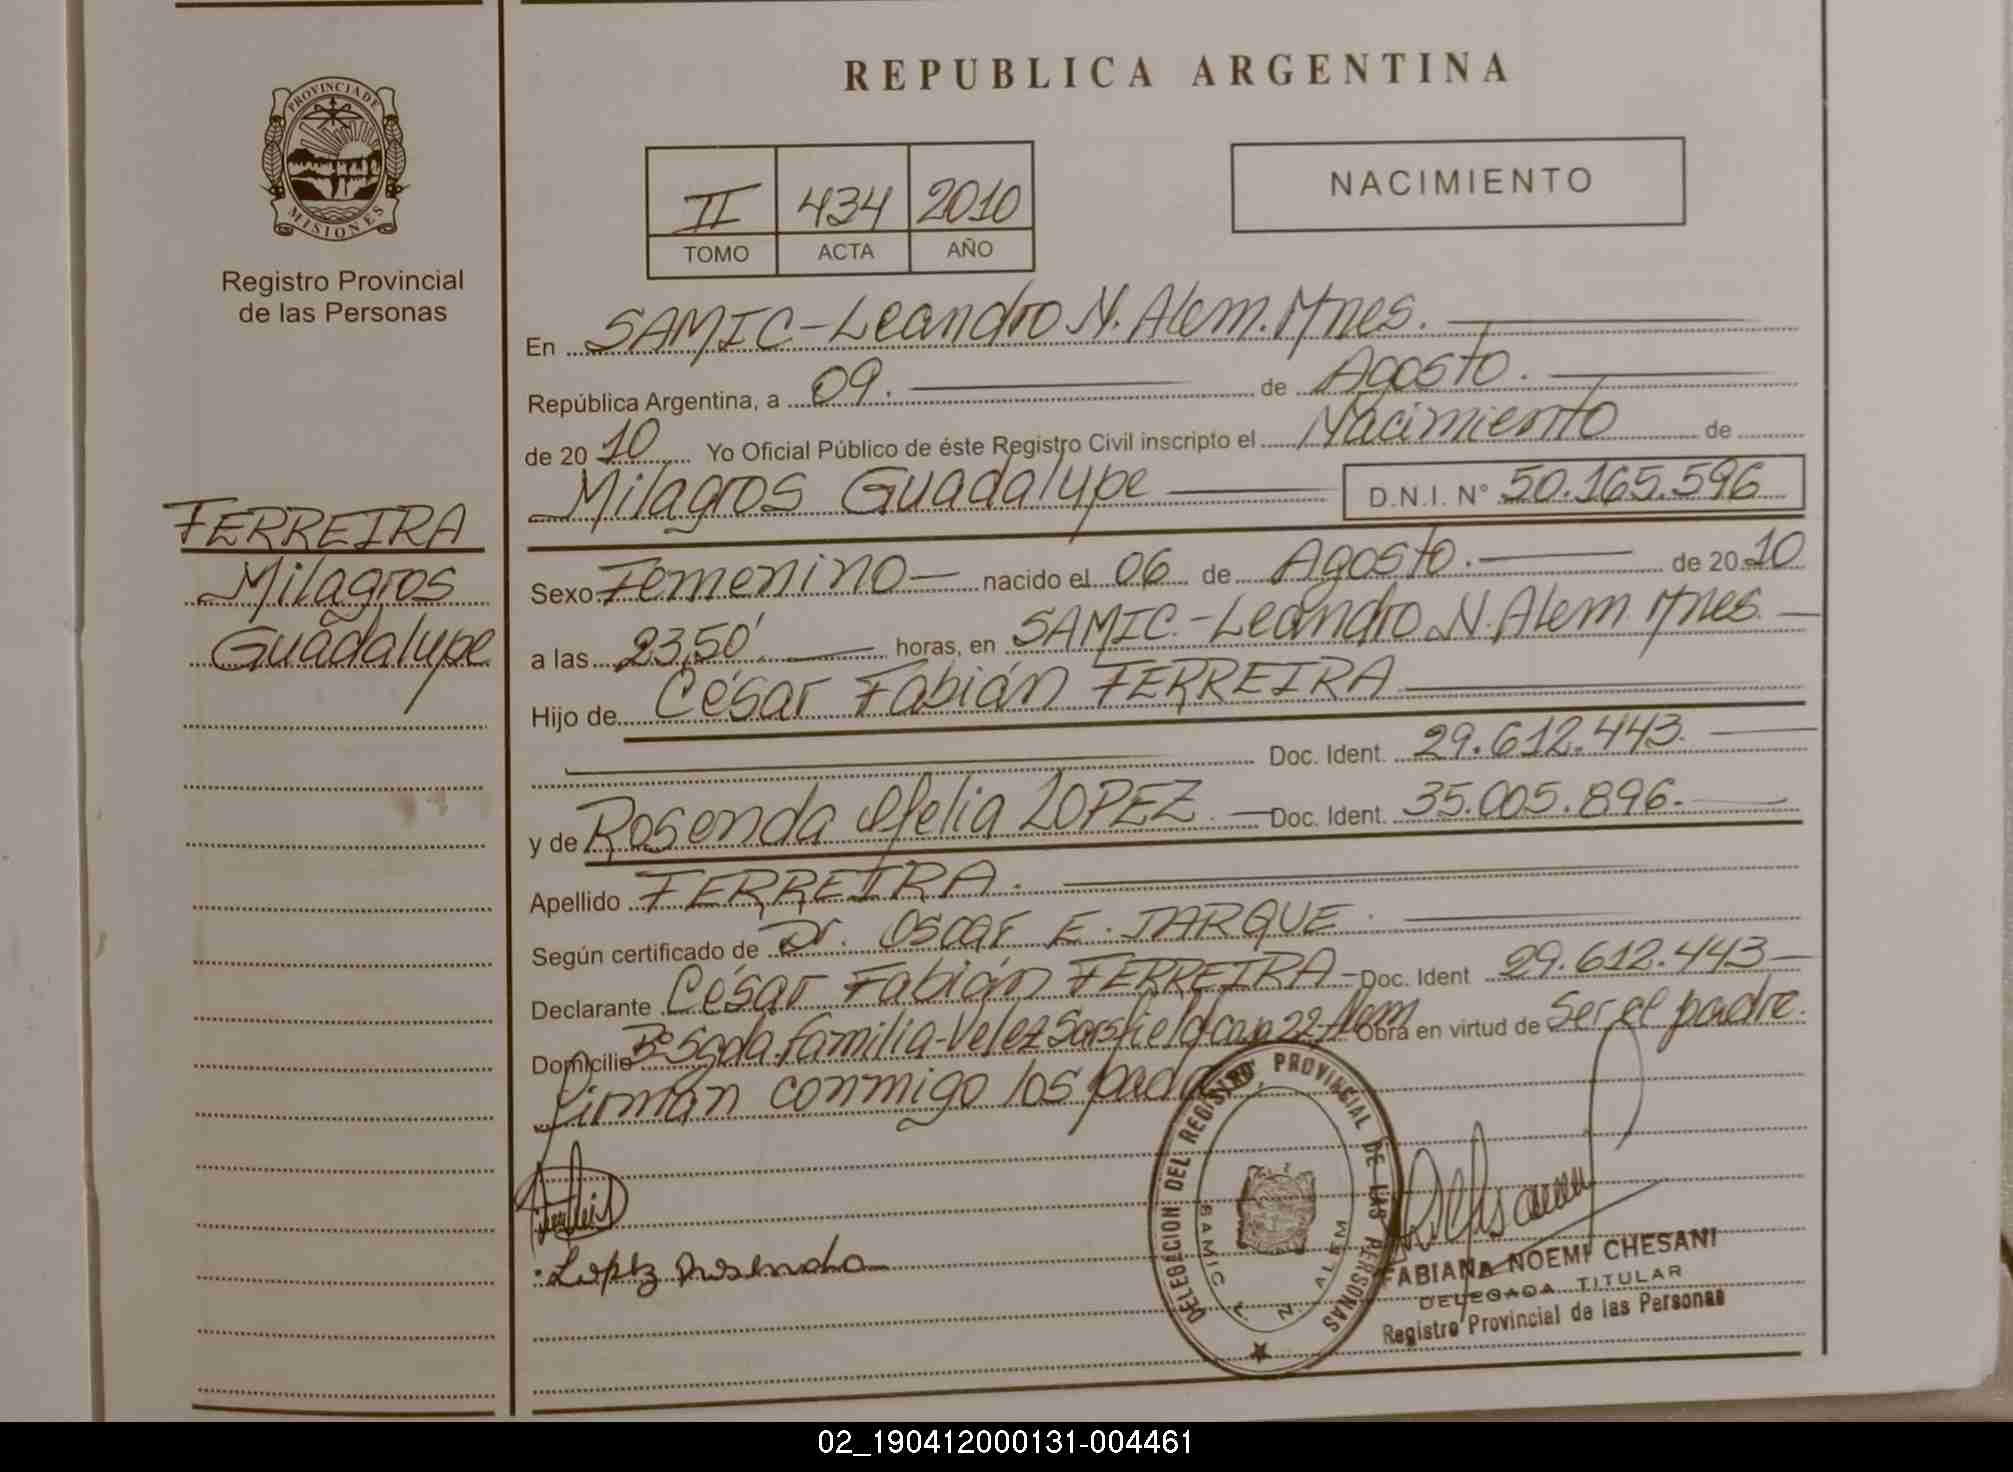 PROVINCIA DE
MISIONES
Registro Provincial
de las Personas
FERREIRA
Milagros
Guadalupe
REPUBLICA ARGENTINA
II 434 2010
TOMO ACTA AÑO
NACIMIENTO
En SAMIC-Leandro N. Alem. Mnes.
República Argentina, a 09. de Agosto.
de 20 10 Yo Oficial Público de éste Registro Civil inscripto el Nacimiento de
Milagros Guadalupe D.N.I. N° 50.165.596
Sexo Femenino nacido el 06 de Agosto. de 20 10
a las 23,50' horas, en SAMIC.-Leandro N. Alem. Mnes.
Hijo de César Fabián FERREIRA
Doc. Ident. 29.612.443.
y de Rosenda Ofelia LOPEZ. Doc. Ident. 35.005.896.
Apellido FERREIRA.
Según certificado de Dr. Oscar E. JARQUE.
Declarante César Fabián FERREIRA Doc. Ident 29.612.443
Domicilio B° Sgda. Familia-Velez Sarsfield 22-Alem Obra en virtud de Ser el padre.
Firman conmigo los
Lopez Rosenda
DELEGACION DEL REGISTRO PROVINCIAL DE LAS PERSONAS
SAMIC L N ALEM
FABIANA NOEMI CHESANI
DELEGADA TITULAR
Registro Provincial de las Personas
02_190412000131-004461